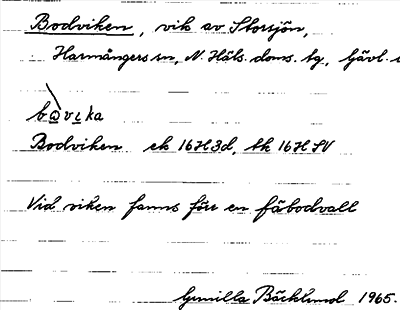 Bodviken, vik av Storsjön,
Harmångers sn, N. Häls. doms. tg, Gävl.
bωvιka
Bodviken ek 16H3d, tk 16H SV
Vid viken fanns förr en fäbodvall
Gunilla Bäcklund 1965.